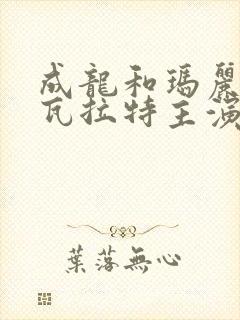 成龍和瑪麗
瓦拉特主演
葉落無心